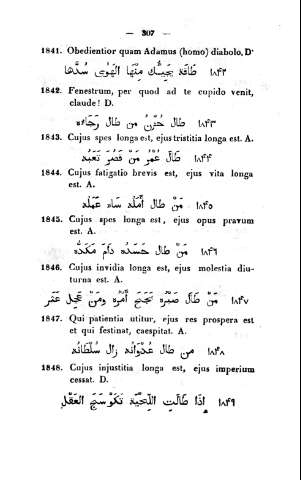 — 307 —
1841. Obedientior quam Adamus (homo) diabolo, D'
١٨٤٢ طاقة يجيئك منها الهوى سدّها
1842. Fenestrum, per quod ad te cupido venit,
claude! D.
١٨٤٣ طال حزن من طال رجاءه
1843. Cujus spes longa est, ejus tristitia longa est. A.
١٨٤٤ طال عمر من قصر تعبه
1844. Cujus fatigatio brevis est, ejus vita longa
est. A.
١٨٤٥ من طال أمله ساء عمله
1845. Cujus spes longa est, ejus opus pravum
est. A.
١٨٤٦ من طال حسده دام مكده
1846. Cujus invidia longa est, ejus molestia diu-
turna est. A.
١٨٤٧ من طال صبره نجح أمره ومن عجل عثر
1847. Qui patientia utitur, ejus res prospera est
et qui festinat, caespitat. A.
١٨٤٨ من طال عدوانه زال سلطانه
1848. Cujus injustitia longa est, ejus imperium
cessat. D.
١٨٤٩ إذا طالت اللحية تكوسج العقل